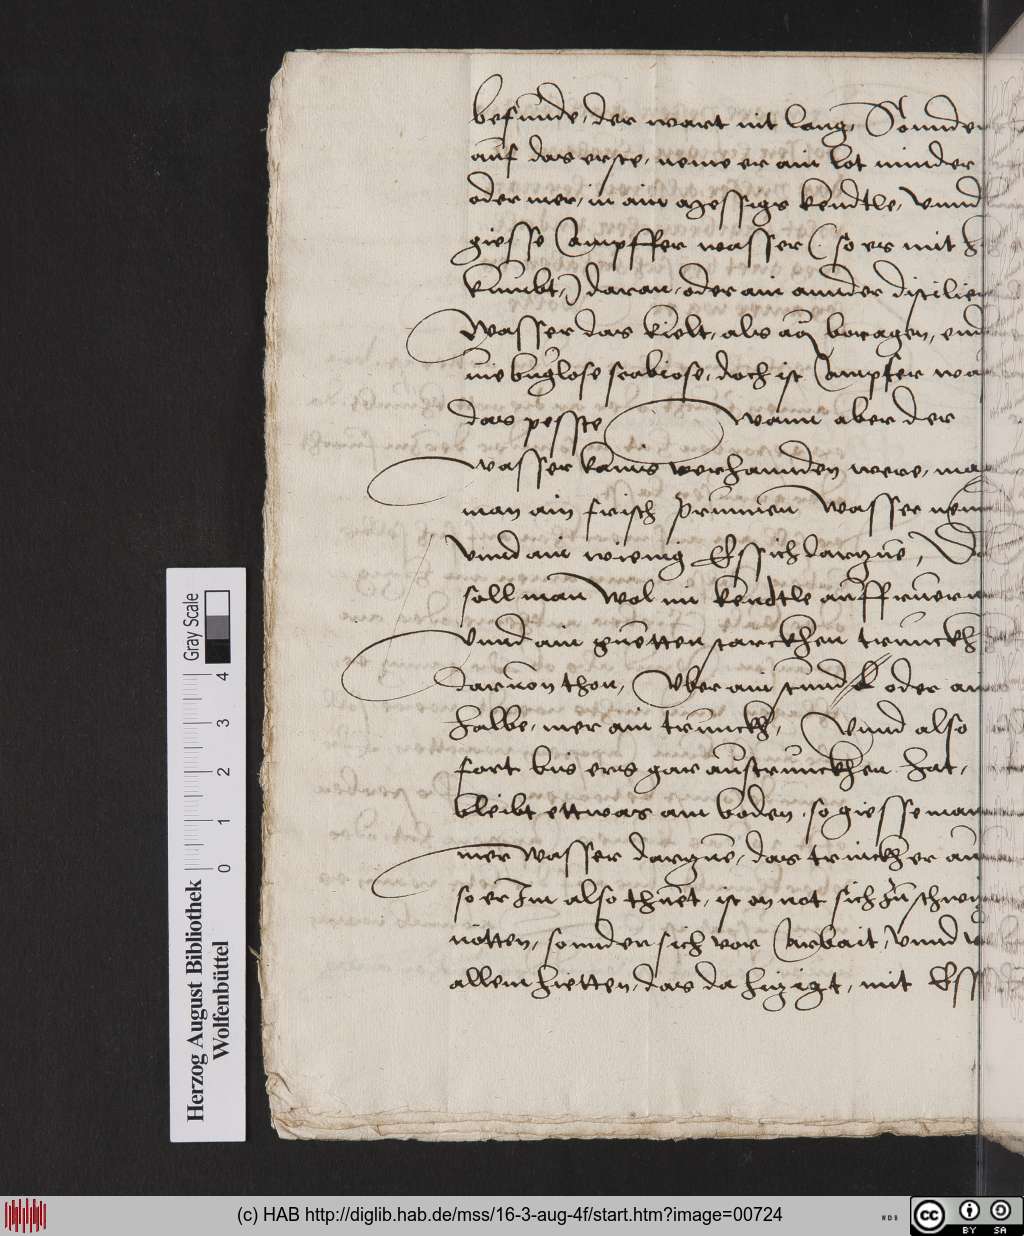 befunde, der wart nit lang, Sonnder
auf das erste, neme er ain lot minder
oder mer, in ain kendtle, vnnd
giesse Campffer wasser (so es mit
kumbt,) daran, oder ain annder distilier
Wasser das kielt, als boragen,
buglose scabiose, doch ist Campfer wa
das pesste Wann aber der
wasser kains verhannden were, ma
man ain frisch prunnen Wasser nem
vnnd ain wienig Essich darzue, Da
soll man Wol im kendtle auffruern
vnnd ain guetten starckhen trunckh
daruon thon, Vber ain stund oder ain
halbe, mer ain trunckh, Vnnd also
fort bis ers gar austrunckhen hat,
bleibt ettwas am boden, so giesse man
mer Wasser darzue, das trinckh er au
so er Im also thuet, ist on not sich zu schwi
nötten, sonnder sich vor Arbait, vnnd v
allem hietten, das da hizigt, mit Ess
Gray Scale
0 1 2 3 4
Herzog August Bibliothek
Wolfenbüttel
(c) HAB http://diglib.hab.de/mss/16-3-aug-4f/start.htm?image=00724
WDB
cc BY SA